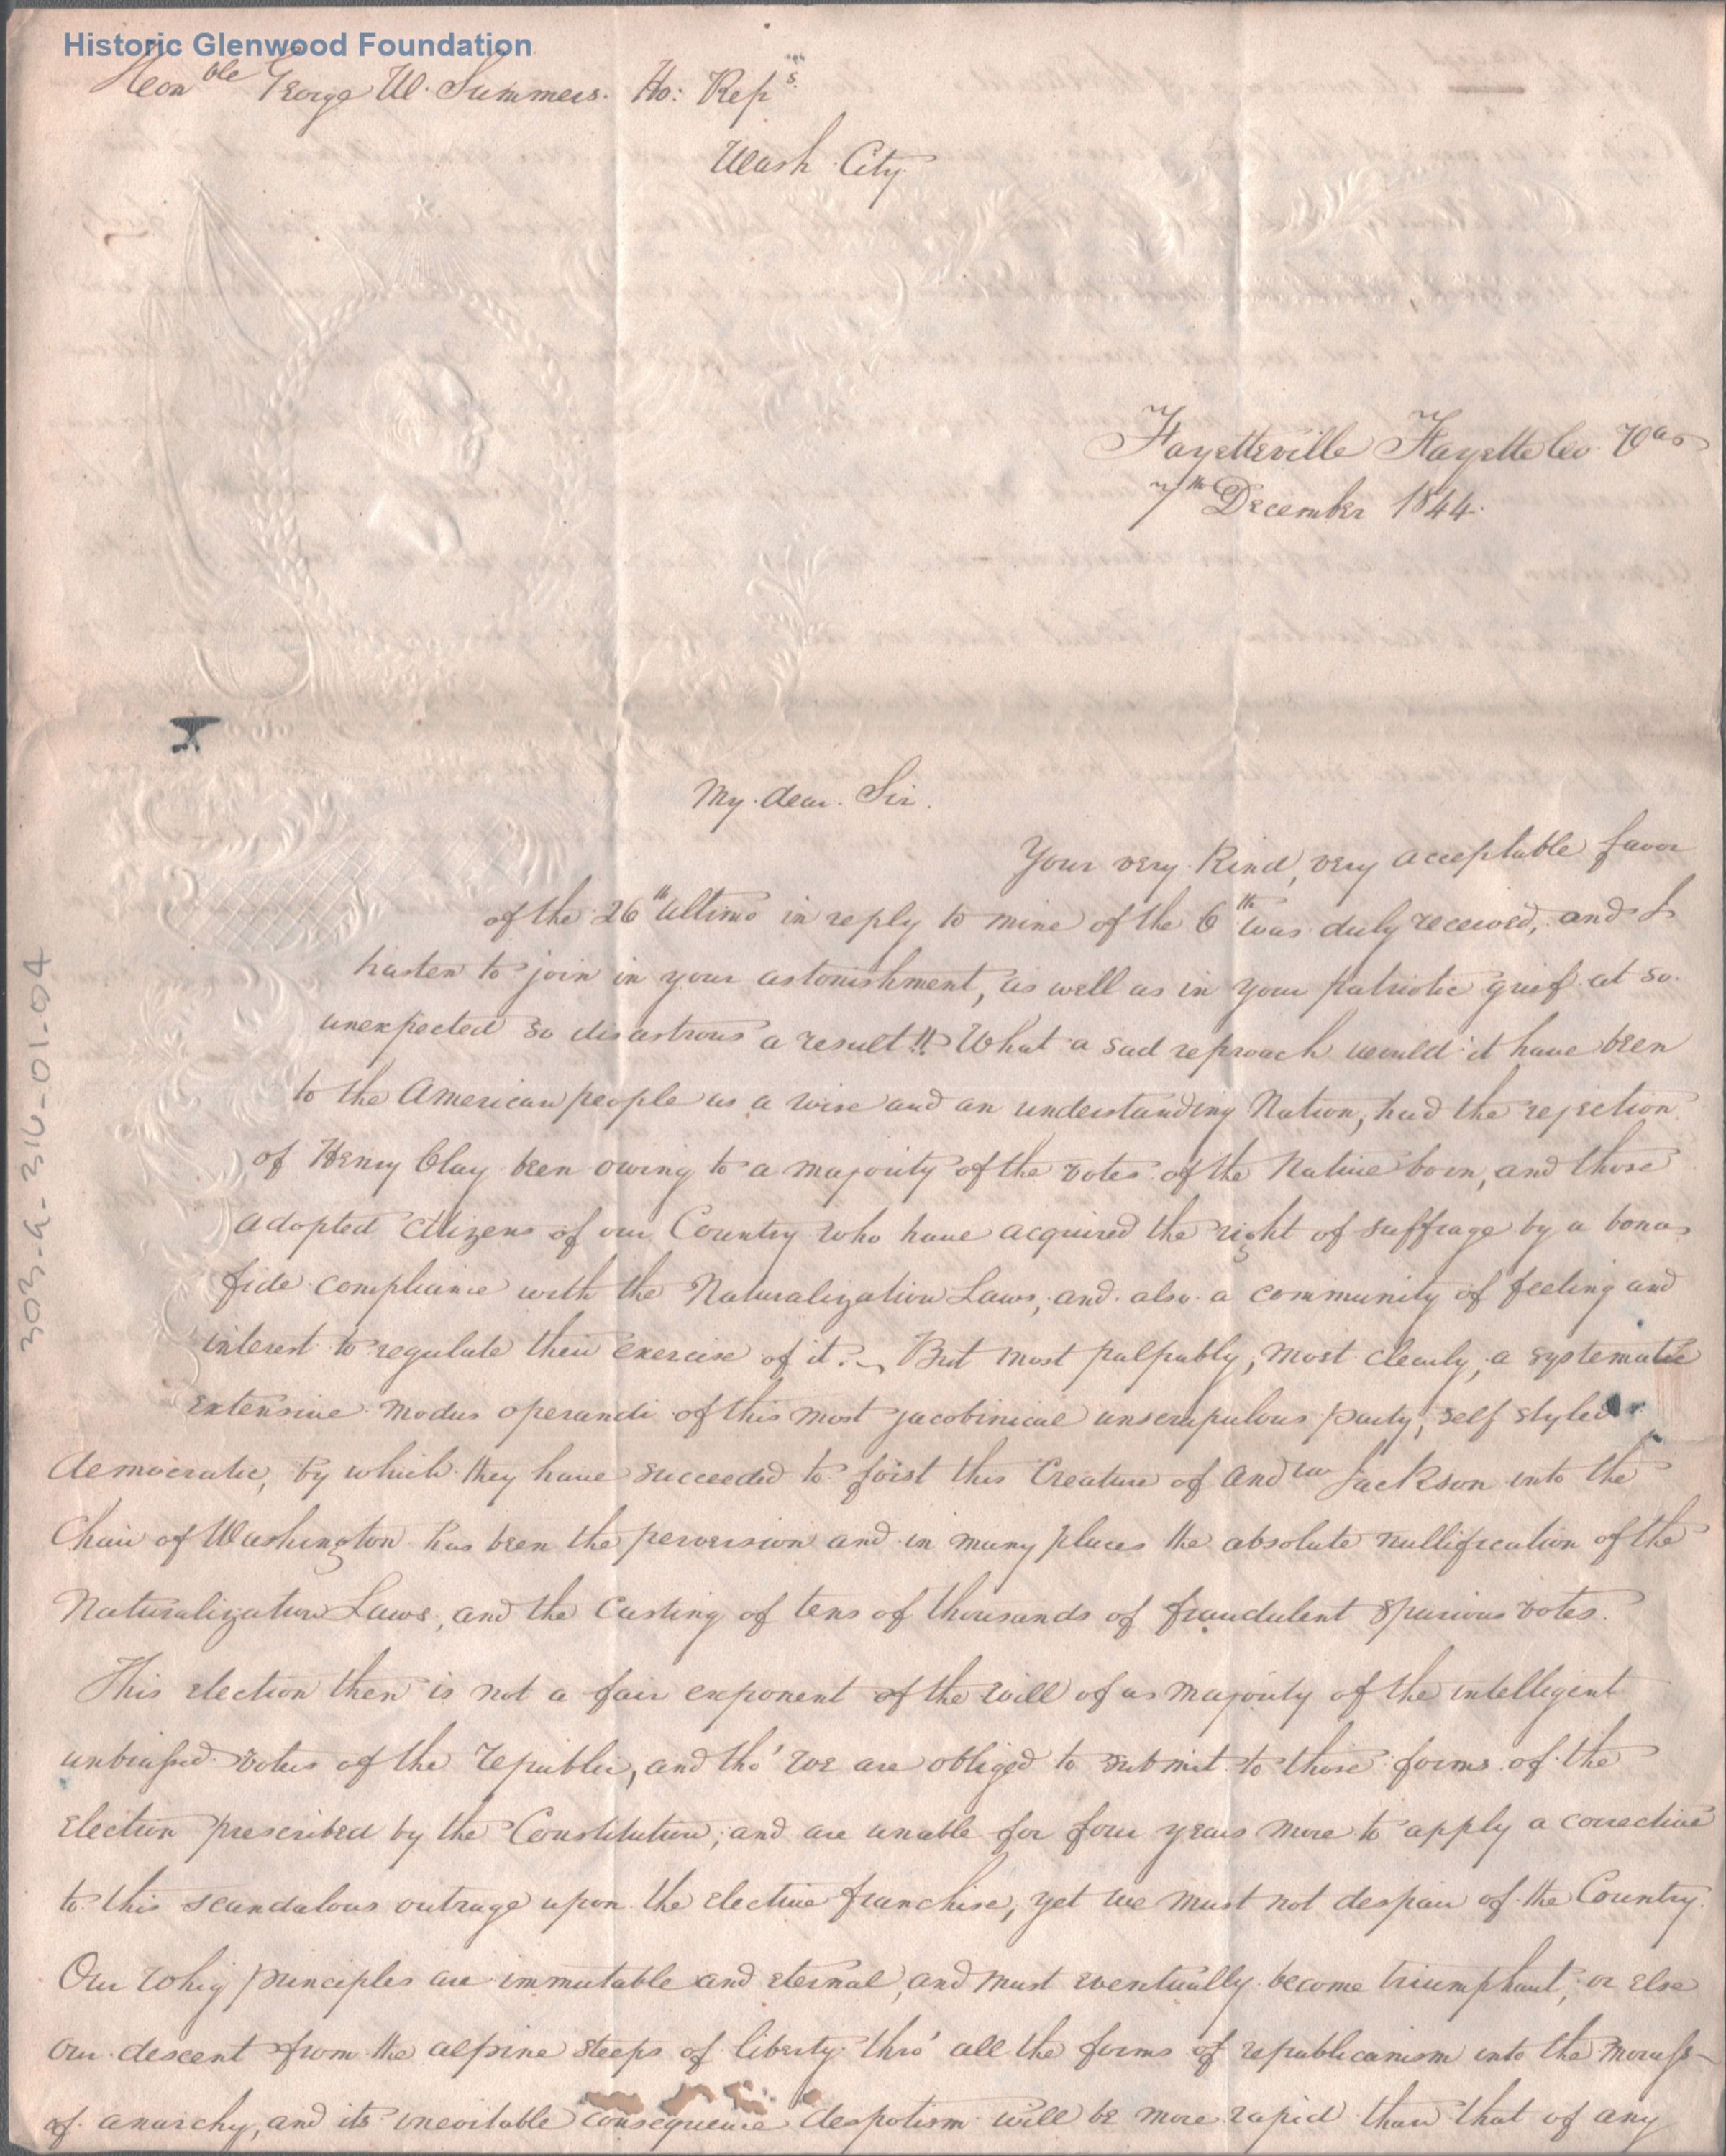 Historic Glenwood Foundation
Honble George W. Summers. Ho: Reps.
Wash City.
Fayetteville Fayette Co. Va
7th December 1844.
My dear. Sir.
Your very Kind, very acceptable favor
of the 26th Ultimo in reply to mine of the 6th was duly received, and I
hasten to join in your astonishment, as well as in your patriotic grief at so
unexpected so disastrous a result!! What a sad reproach would it have been
to the American people as a wise and an understanding Nation, had the rejection
of Henry Clay been owing to a majority of the votes of the Native born, and those
adopted citizens of our Country who have acquired the right of suffrage by a bona
fide compliance with the Naturalization Laws, and also a community of feeling and
interest to regulate their exercise of it. But most palpably, most clearly, a systematic
extensive modus operandi of this most jacobinical unscrupulous party, self styled
democratic, by which they have succeeded to foist this Creature of Andw Jackson into the
Chair of Washington has been the perversion and in many places the absolute nullification of the
Naturalization Laws, and the casting of tens of thousands of fraudulent spurious votes.
This election then is not a fair exponent of the will of a majority of the intelligent
unbiassed votes of the republic, and tho' we are obliged to submit to those forms of the
election prescribed by the Constitution, and are unable for four years more to apply a corrective
to this scandalous outrage upon the elective franchise, yet we must not despair of the Country.
Our Whig principles are immutable and eternal, and must eventually become triumphant, or else
our descent from the alpine steeps of liberty thro' all the forms of republicanism into the morass
of anarchy, and its inevitable consequence despotism will be more rapid than that of any
303-h-316-01-04